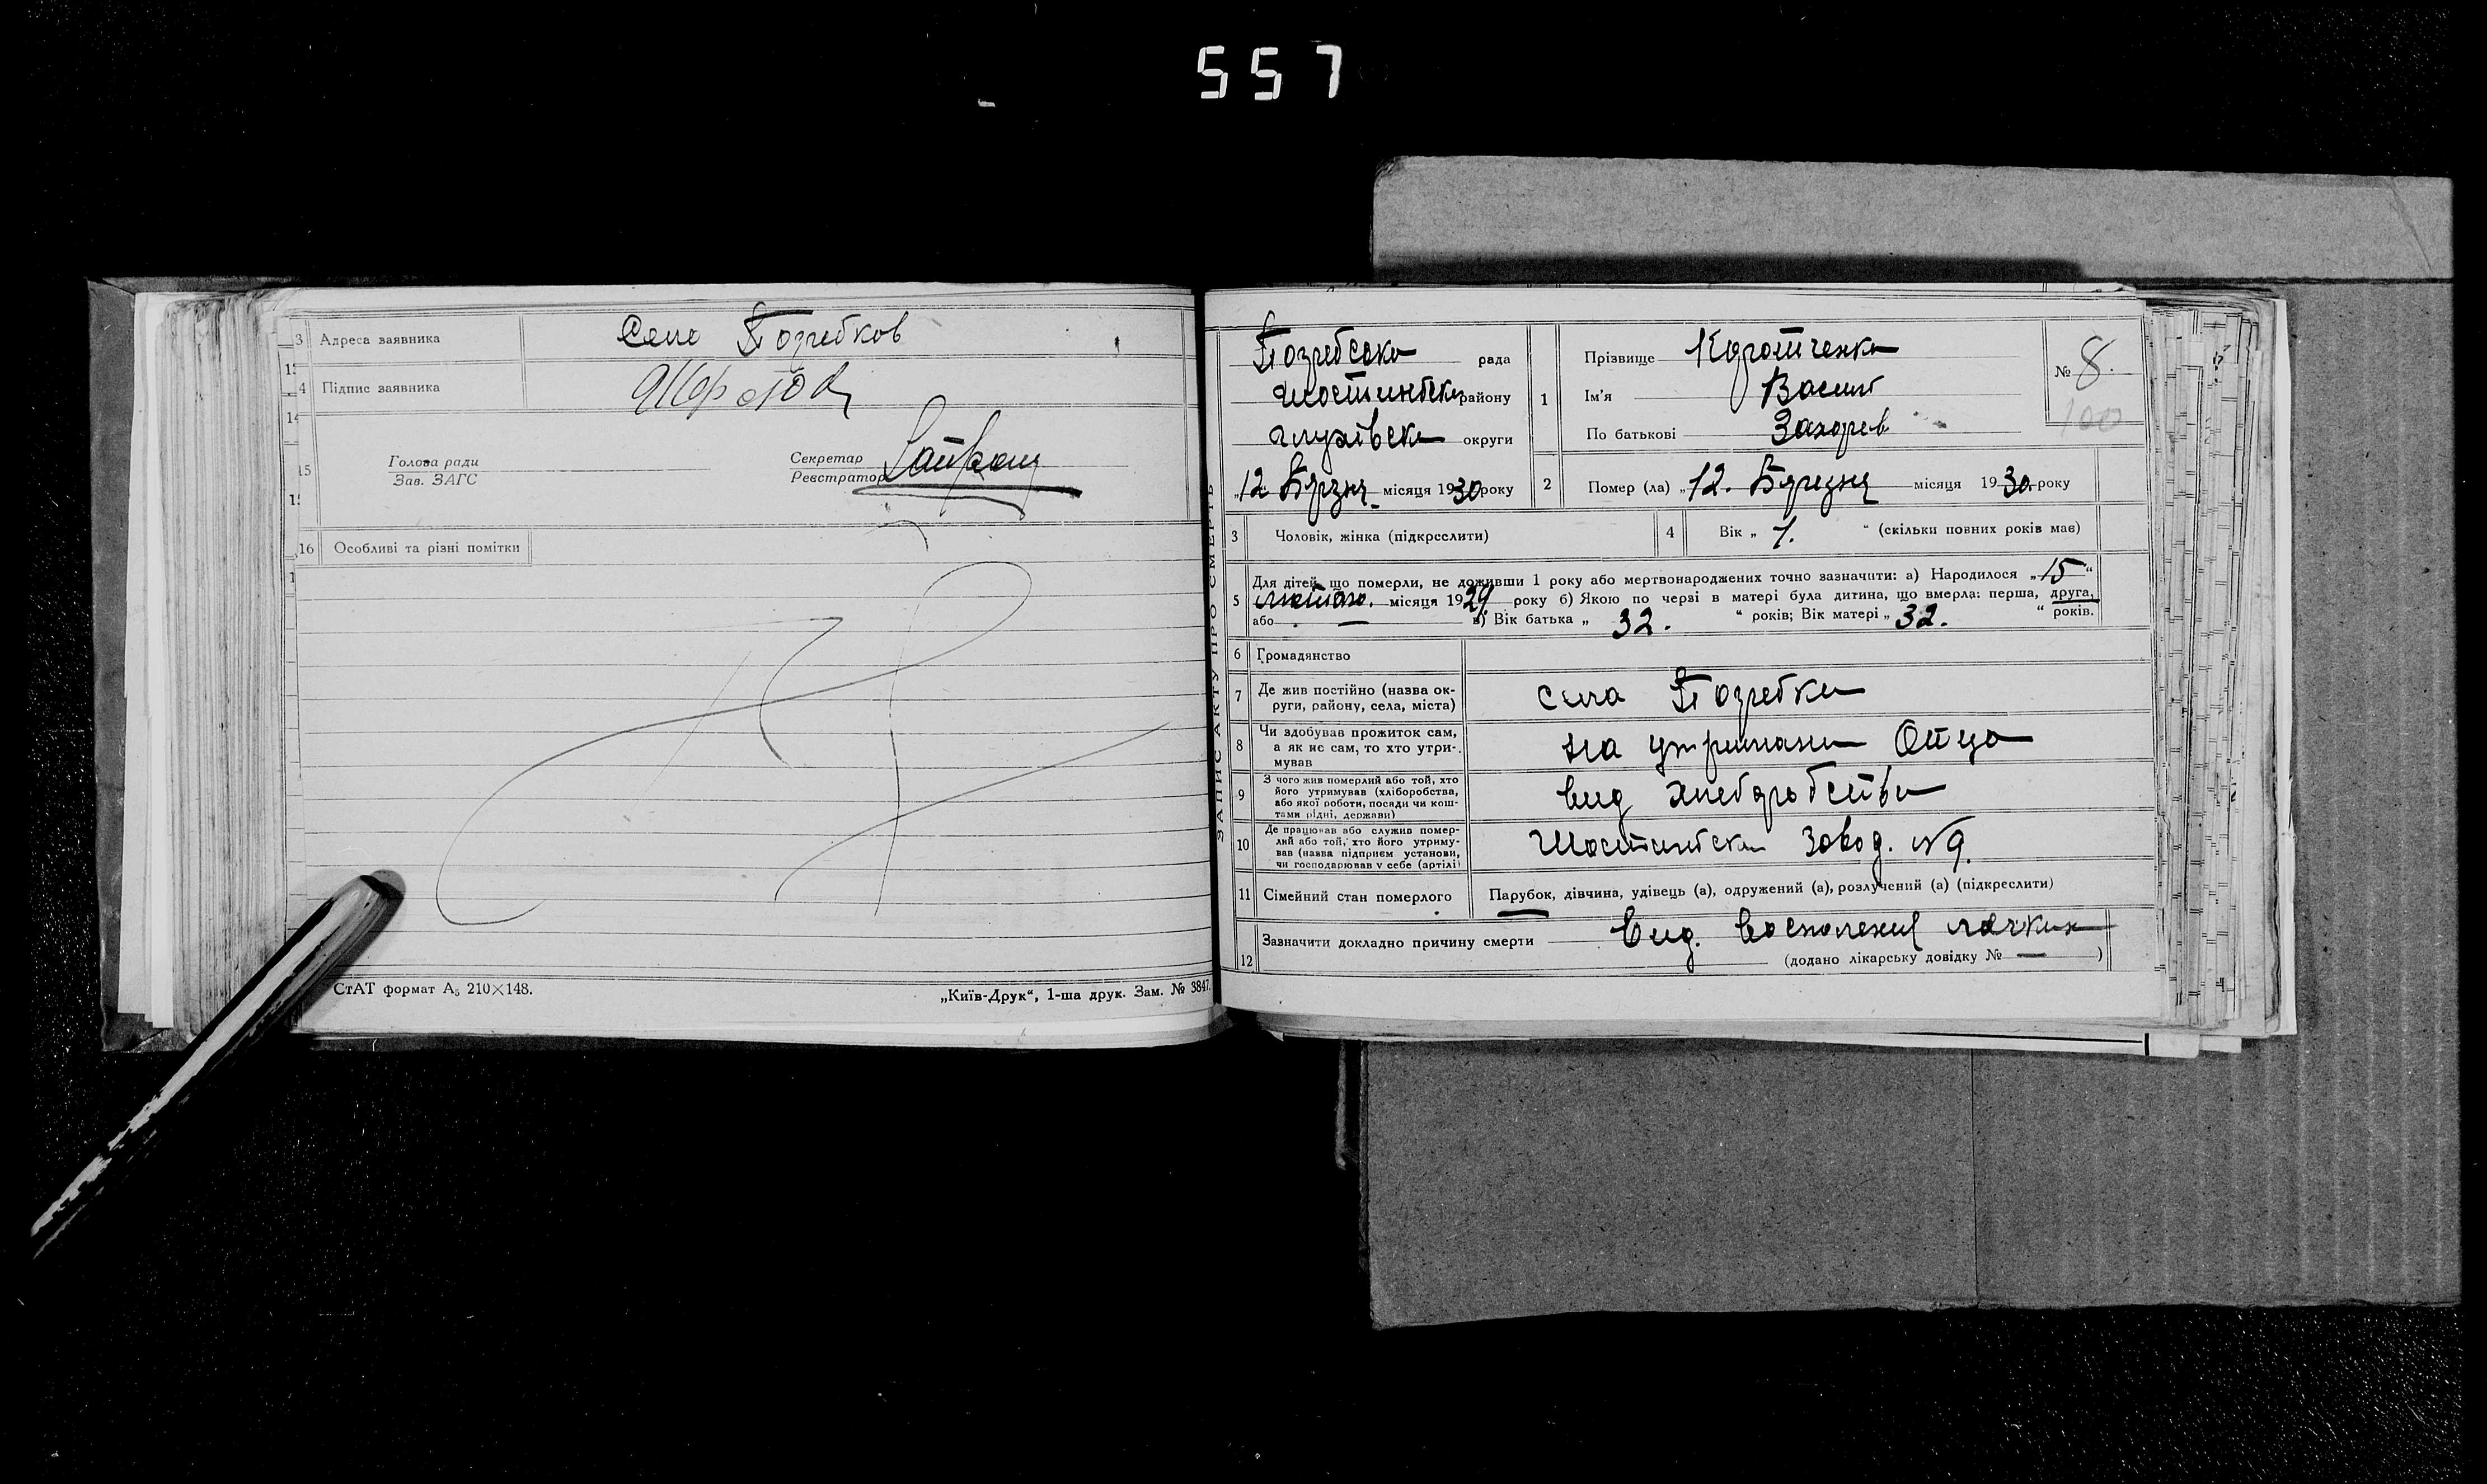 557
3 Адреса заявника Село Погребков
4 Підпис заявника
15 Голова ради
Зав. ЗАГС
Секретар
Реєстратор
16 Особливі та різні помітки
СтАТ формат А₅ 210×148.
„Київ-Друк“, 1-ша друк. Зам. № 3847.
ЗАПИС АКТУ ПРО СМЕРТЬ
Погребська рада
Шостинбска району
Глухівска округи
„12 Брзня місяця 1930 року
1 Прізвище Коротченко
Ім'я Васил
По батькові Захорев
№ 8.
100
2 Помер (ла) „12. Березня місяця 1930 року
3 Чоловік, жінка (підкреслити)
4 Вік „ 1. “ (скільки повних років має)
5 Для дітей, що померли, не доживши 1 року або мертвонароджених точно зазначити: а) Народилося „15“
лютого. місяця 1929. року б) Якою по черзі в матері була дитина, що вмерла: перша, друга,
або — в) Вік батька „ 32. “ років; Вік матері „ 32. “ років.
6 Громадянство
7 Де жив постійно (назва ок-
руги, району, села, міста)
села Погребки
8 Чи здобував прожиток сам,
а як не сам, то хто утри-
мував
на утримани Отца
9 З чого жив померлий або той, хто
його утримував (хліборобства,
або якої роботи, посади чи кош-
тами рідні, держави)
вид хлеборобства
10 Де працював або служив помер-
лий або той, хто його утриму-
вав (назва підприєм установи,
чи господарював у себе (артілі)
Шостинбски Завод. №9.
11 Сімейний стан померлого Парубок, дівчина, удівець (а), одружений (а), розлучений (а) (підкреслити)
12 Зазначити докладно причину смерти Вид. восполения лёчких
(додано лікарську довідку № — )